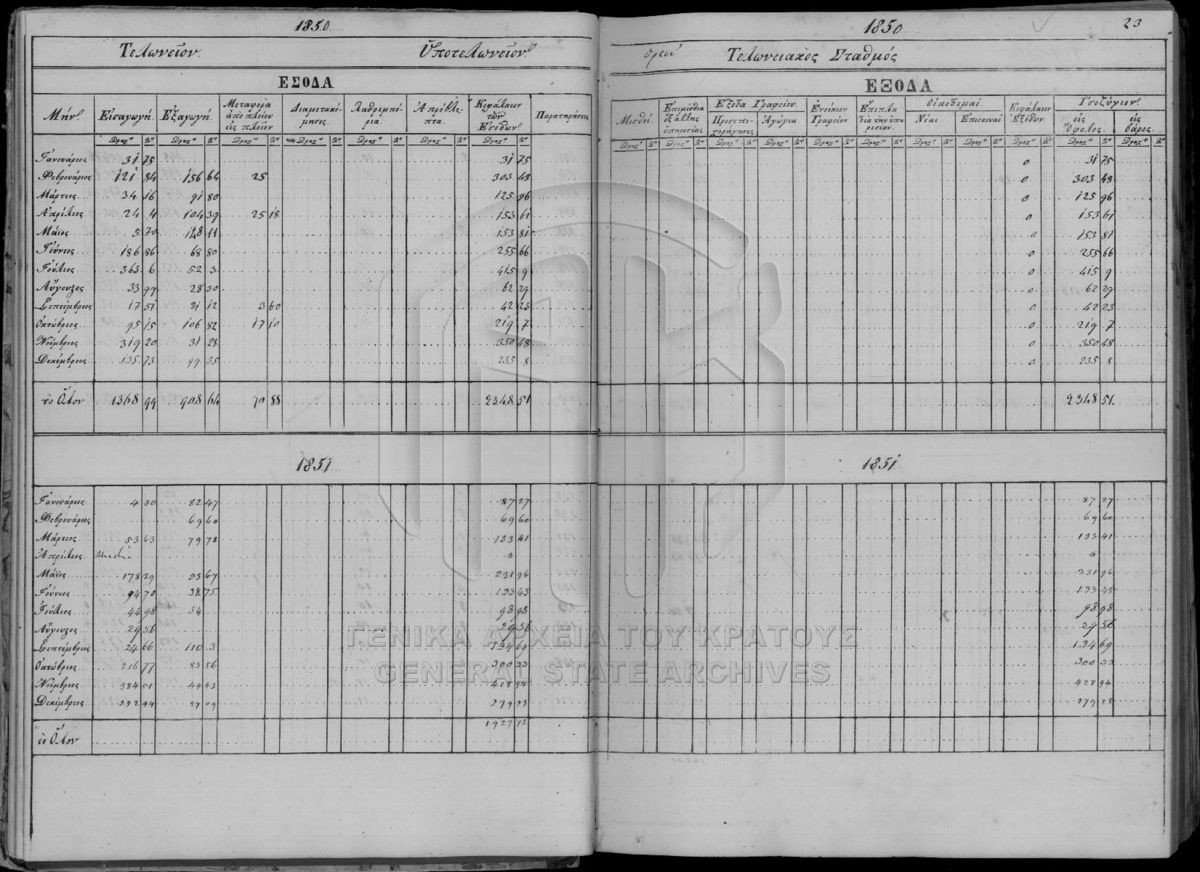 1850
Τελωνεῖον. Ὑποτελωνεῖον.
ΕΣΟΔΑ
Μήν. Εἰσαγωγή. Ἐξαγωγή. Μεταφορὰ ἀπὸ πλοίου εἰς πλοῖον Διαμετακόμησις. Λαθρεμπόρια. Ἀπρόβλεπτα. Κεφάλαιον τῶν Ἐσόδων. Παρατηρήσεις
Δραχ. Λ. Δραχ. Λ. Δραχ. Λ. Δραχ. Λ. Δραχ. Λ. Δραχ. Λ. Δραχ. Λ.
Ἰανουάριος 31 75 31 75
Φεβρουάριος 121 84 156 64 25 303 48
Μάρτιος 34 16 91 80 125 96
Ἀπρίλιος 24 4 104 39 25 18 153 61
Μάϊος 5 70 148 11 153 81
Ἰούνιος 186 86 68 80 255 66
Ἰούλιος 363 6 52 3 415 9
Αὔγουστος 33 99 28 30 62 29
Σεπτέμβριος 17 51 21 12 3 60 42 23
Ὀκτώβριος 95 15 106 82 17 10 219 7
Νοέμβριος 319 20 31 28 350 48
Δεκέμβριος 135 73 99 35 235 8
τὸ Ὅλον 1368 99 908 64 70 88 2348 51
1851
Ἰανουάριος 4 80 82 47 87 27
Φεβρουάριος 69 60 69 60
Μάρτιος 53 63 79 78 133 41
Ἀπρίλιος 0
Μάϊος 178 29 53 67 231 96
Ἰούνιος 94 70 38 75 133 45
Ἰούλιος 44 98 54 98 98
Αὔγουστος 29 56 29 56
Σεπτέμβριος 24 66 110 3 134 69
Ὀκτώβριος 216 77 83 56 300 33
Νοέμβριος 384 51 44 43 428 94
Δεκέμβριος
1927 12
τὸ Ὅλον
1850 23
Τελωνειακὸς Σταθμός
ΕΞΟΔΑ
Μισθοί. Ἐπιμίσθια &amp; ἄλλης ὑπηρεσίας Ἔξοδα Γραφείου. Προσεπιχορήγησις Ἀγώγια Ἐνοίκιον Γραφείου Ἔπιπλα διὰ τὴν ὑπηρεσίαν. Οἰκοδομαὶ Νέαι. Ἐπισκευαί Κεφάλαιον Ἐξόδων. Ἰσοζύγιον. εἰς Ὄφελος. εἰς βάρος.
Δραχ. Λ. Δραχ. Λ. Δραχ. Λ. Δραχ. Λ. Δραχ. Λ. Δραχ. Λ. Δραχ. Λ. Δραχ. Λ. Δραχ. Λ. Δραχ. Λ. Δραχ. Λ.
0 31 75
0 303 48
0 125 96
0 153 61
0 153 81
0 255 66
0 415 9
0 62 29
0 42 23
0 219 7
0 350 48
0 235 8
2348 51
1851
87 27
69 60
133 41
0
231 96
133 45
98 98
29 56
134 69
300 33
428 94
ΓΕΝΙΚΑ ΑΡΧΕΙΑ ΤΟΥ ΚΡΑΤΟΥΣ
GENERAL STATE ARCHIVES